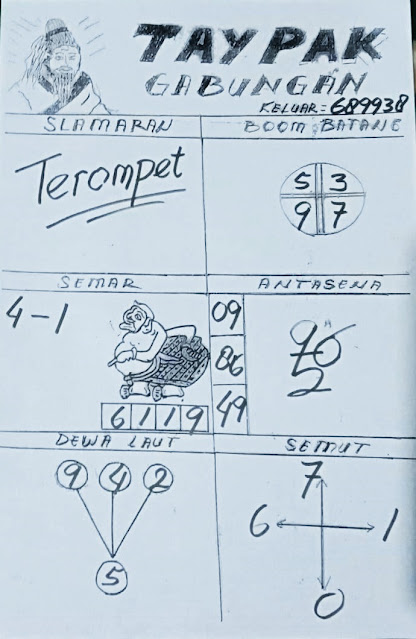 TAYPAK
GABUNGAN
KELUAR = 689938
SLAMARAN
BOOM BATANE
Terompet
5 3
9 7
SEMAR
ANTASENA
4-1
09
86
49
6 1 1 9
A
96
2
DEWA LAUT
SEMUT
9 4 2
5
7
6 1
0